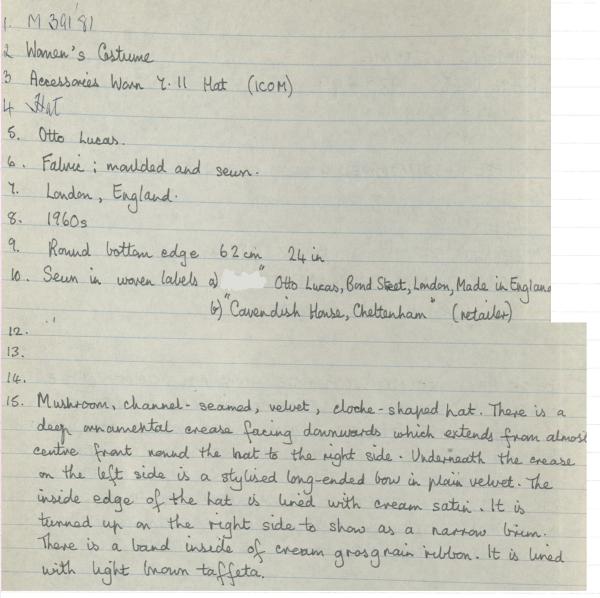 1. M 391'81
2 Women's Costume
3 Accessories Worn 7.11 Hat (ICOM)
4 Hat
5. Otto Lucas.
6. Fabric; moulded and sewn.
7. London, England.
8. 1960s
9. Round bottom edge 62cm 24 in
10. Sewn in woven labels a) " Otto Lucas, Bond Street, London, Made in England
b) "Cavendish House, Cheltenham" (retailer)
12.
13.
14.
15. Mushroom, channel-seamed, velvet, cloche-shaped hat. There is a
deep ornamental crease facing downwards which extends from almost
centre front round the hat to the right side. Underneath the crease
on the left side is a stylised long-ended bow in plain velvet. The
inside edge of the hat is lined with cream satin. It is
turned up on the right side to show as a narrow brim.
There is a band inside of cream grosgrain ribbon. It is lined
with light brown taffeta.